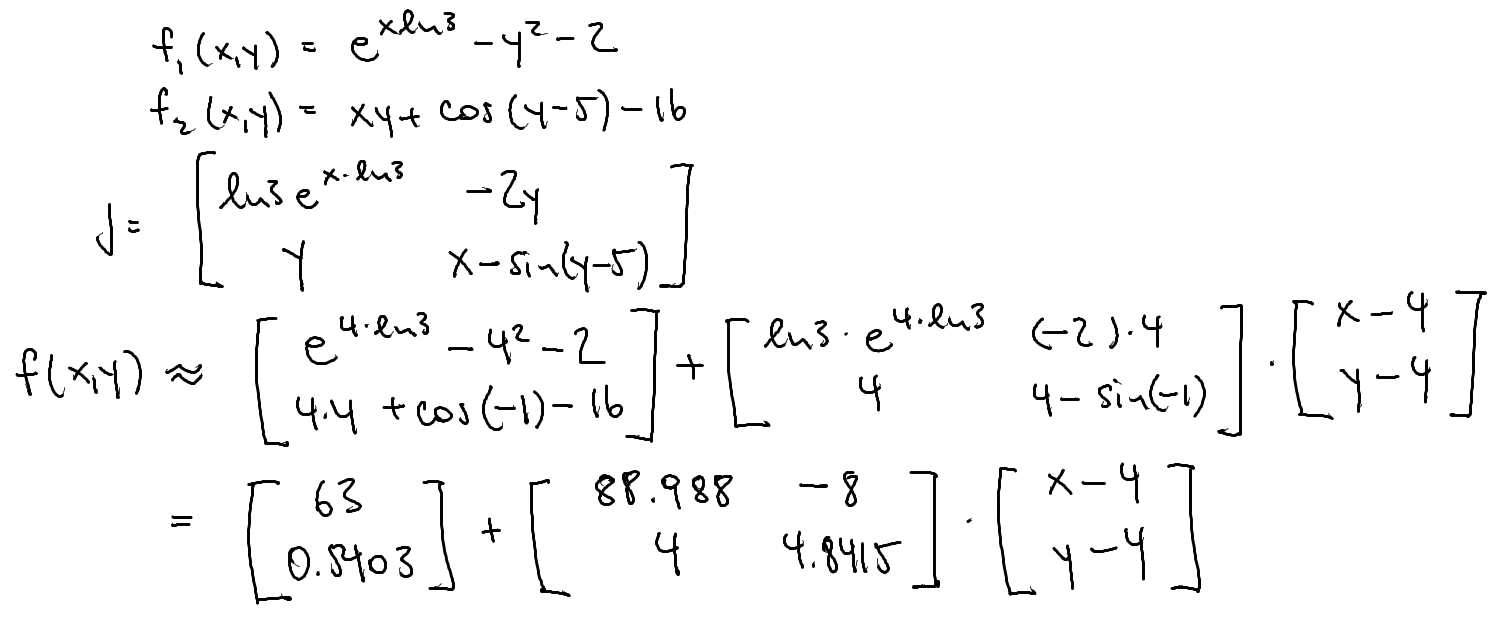 f₁(x,y) = e^{x ln3} - y² - 2
f₂(x,y) = xy + cos(y-5) - 16
J = [ ln3 e^{x·ln3}  -2y ; y  x - sin(y-5) ]
f(x,y) ≈ [ e^{4·ln3} - 4² - 2 ; 4·4 + cos(-1) - 16 ] + [ ln3·e^{4·ln3}  (-2)·4 ; 4  4 - sin(-1) ] · [ x-4 ; y-4 ]
= [ 63 ; 0.5403 ] + [ 88.988  -8 ; 4  4.8415 ] · [ x-4 ; y-4 ]